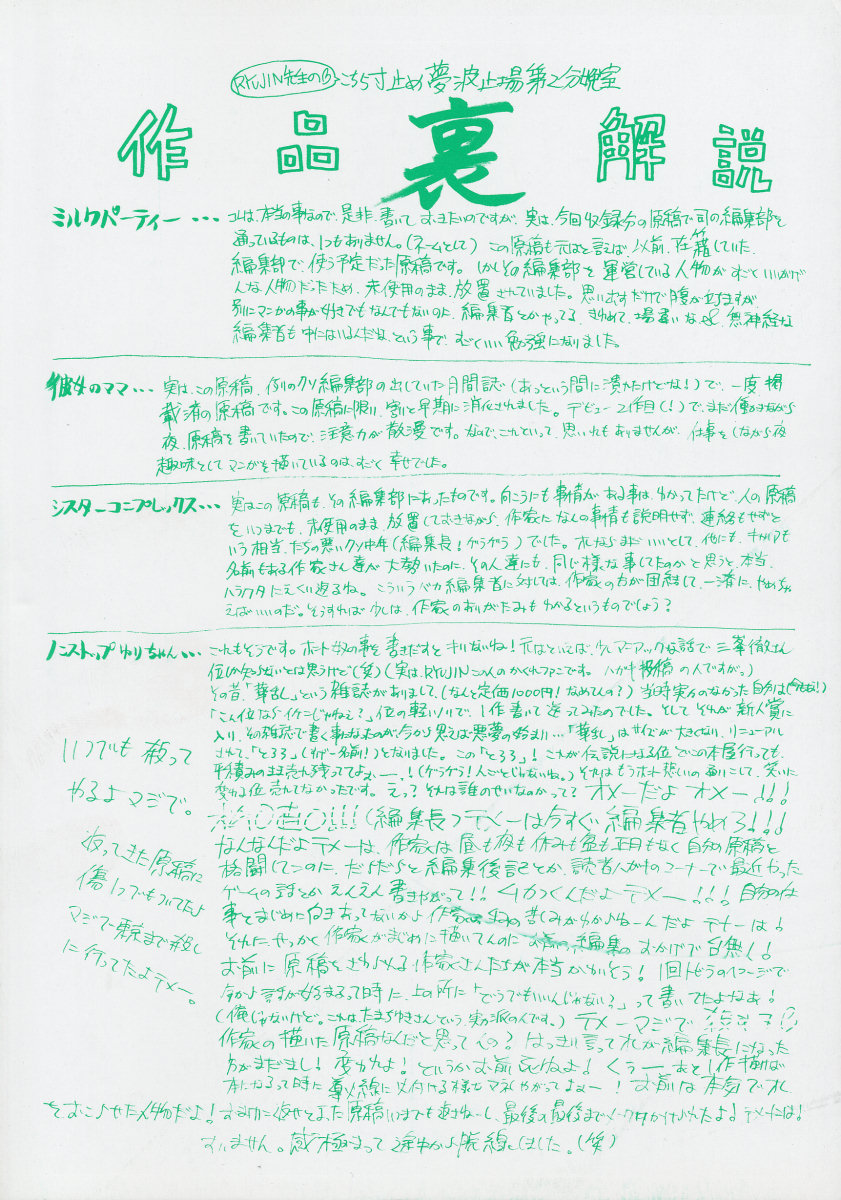 RYUJIN先生の こちら寸止め夢波止場第2分娩室
作品裏解説
ミルクパーティー… コレは、本当の事なので、是非、書いておきたいのですが、実は、今回収録分の原稿で司の編集部を
通っているものは、1つもありません。(ネームとして) この原稿も元はと言えば、以前、在籍していた
編集部で、使う予定だった原稿です。しかしその編集部を運営している人物がすごくいいかげ
んな人物だったため、未使用のまま、放置されていました。思い出すだけで腹が立ちますが
別にマンガの事が好きでもなんでもないのに、編集者とかやってる、きわめて、場違いな&無神経な
編集者も中にはいるんだな、という事で、すごくいい勉強になりました。
彼女のママ… 実は、この原稿、例のクソ編集部の出していた月間誌(あっという間に潰れたけどな!)で、一度掲
載済の原稿です。この原稿に限り、割と早期に消化されました。デビュー2作目(!)で、まだ働きながら
夜、原稿を書いていたので、注意力が散漫です。なので、これといって、思い入れもありませんが、仕事をしながら夜
趣味としてマンガを描いているのは、すごく幸せでした。
シスターコンプレックス… 実はこの原稿も、その編集部にあったものです。向こうにも事情がある事は、わかってたけど、人の原稿
をいつまでも、未使用のまま放置しておきながら、作家になんの事情も説明せず、連絡もせずと
いう相当、たちの悪いクソ中年(編集長!ゲラゲラ)でした。オレならまだいいとして、他にも、キャリアも
名前もある作家さん達が大勢いたのに、その人達にも、同じ様な事してたのかと思うと、本当、
ハラワタにえくり返るね。こういうバカ編集者に対しては、作家の方が団結して、一斉に、やめちゃ
えばいいのだ。そうすれば少しは、作家のありがたみもわかるというものでしょう?
ノンストップゆりちゃん… これもそうです。ホント奴の事を書きだすとキリないね!元はといえば、少しマニアックな話で三峯徹さん
位しか知らないとは思うけど(笑)(実は、RYUJINこの人のかくれファンです。ハガキ投稿の人ですが。)
その昔「華乱」という雑誌がありまして、(なんと定価1000円!なめてんの?)当時実力のなかった自分は(今もだ!)
「こん位ならイケんじゃねえ?」位の軽いノリで、1作書いて送ってみたのでした。そして それが新人賞に
入り、その雑誌で書く事になったのが今から思えば悪夢の始まり…「華乱」はサイズが大きくなり、リニューアル
されて、「とろろ」(すげー名前!)となりました。この「とろろ」!これが伝説になる位どこの本屋行っても、
平積みのまま売れ残っててよぉー、!(ゲラゲラ!人ごとじゃないね。)それはもうホント想いの通りにして、笑いに
変わる位売れてなかったです。えっ?それは誰のせいなのかって? オメーだよオメー!!!
(編集長)テメーは今すぐ編集者やめろ!!!
なんなんだよテメーは、作家は昼も夜も休みも盆も正月もなく自分の原稿と
格闘してんのに、だらだらと編集後記とか、読者ハガキのコーナーで最近やった
ゲームの話とかえんえん書きやがって!!ムカつくんだよテメー!!!自分の仕
事とまじめに向きあってないから作家の苦しみがわからねーんだよ テメーは!
それに、せっかく作家がまじめに描いてんのにお前の編集のおかげで台無し!
お前に原稿をさわられる作家さんたちが本当かわいそう!1回トビラのページで
今から話が始まるって時に、上の所に「どうでもいいんじゃない?」って書いてたよなあ!
(俺じゃないけど。これはたまちゆきさんという実力派の人です。)テメーマジで
作家の描いた原稿なんだと思ってんの?はっきり言ってオレが編集長になった
方がまだまし!変われよ!というかお前死ねよ!くぅーあと1作描けば
本になるって時に
をおこらせた人物だよ!おまけに返せと言った原稿いつまでも返さねーし、最後の最後までメーワクかけられたよ!テメーには!
すいません。感極まって途中から脱線しました。(笑)
いつでも殺って
やるよマジで。
返ってきた原稿に
傷1つでもついてたら
マジで東京まで殺し
に行ってたよテメー。